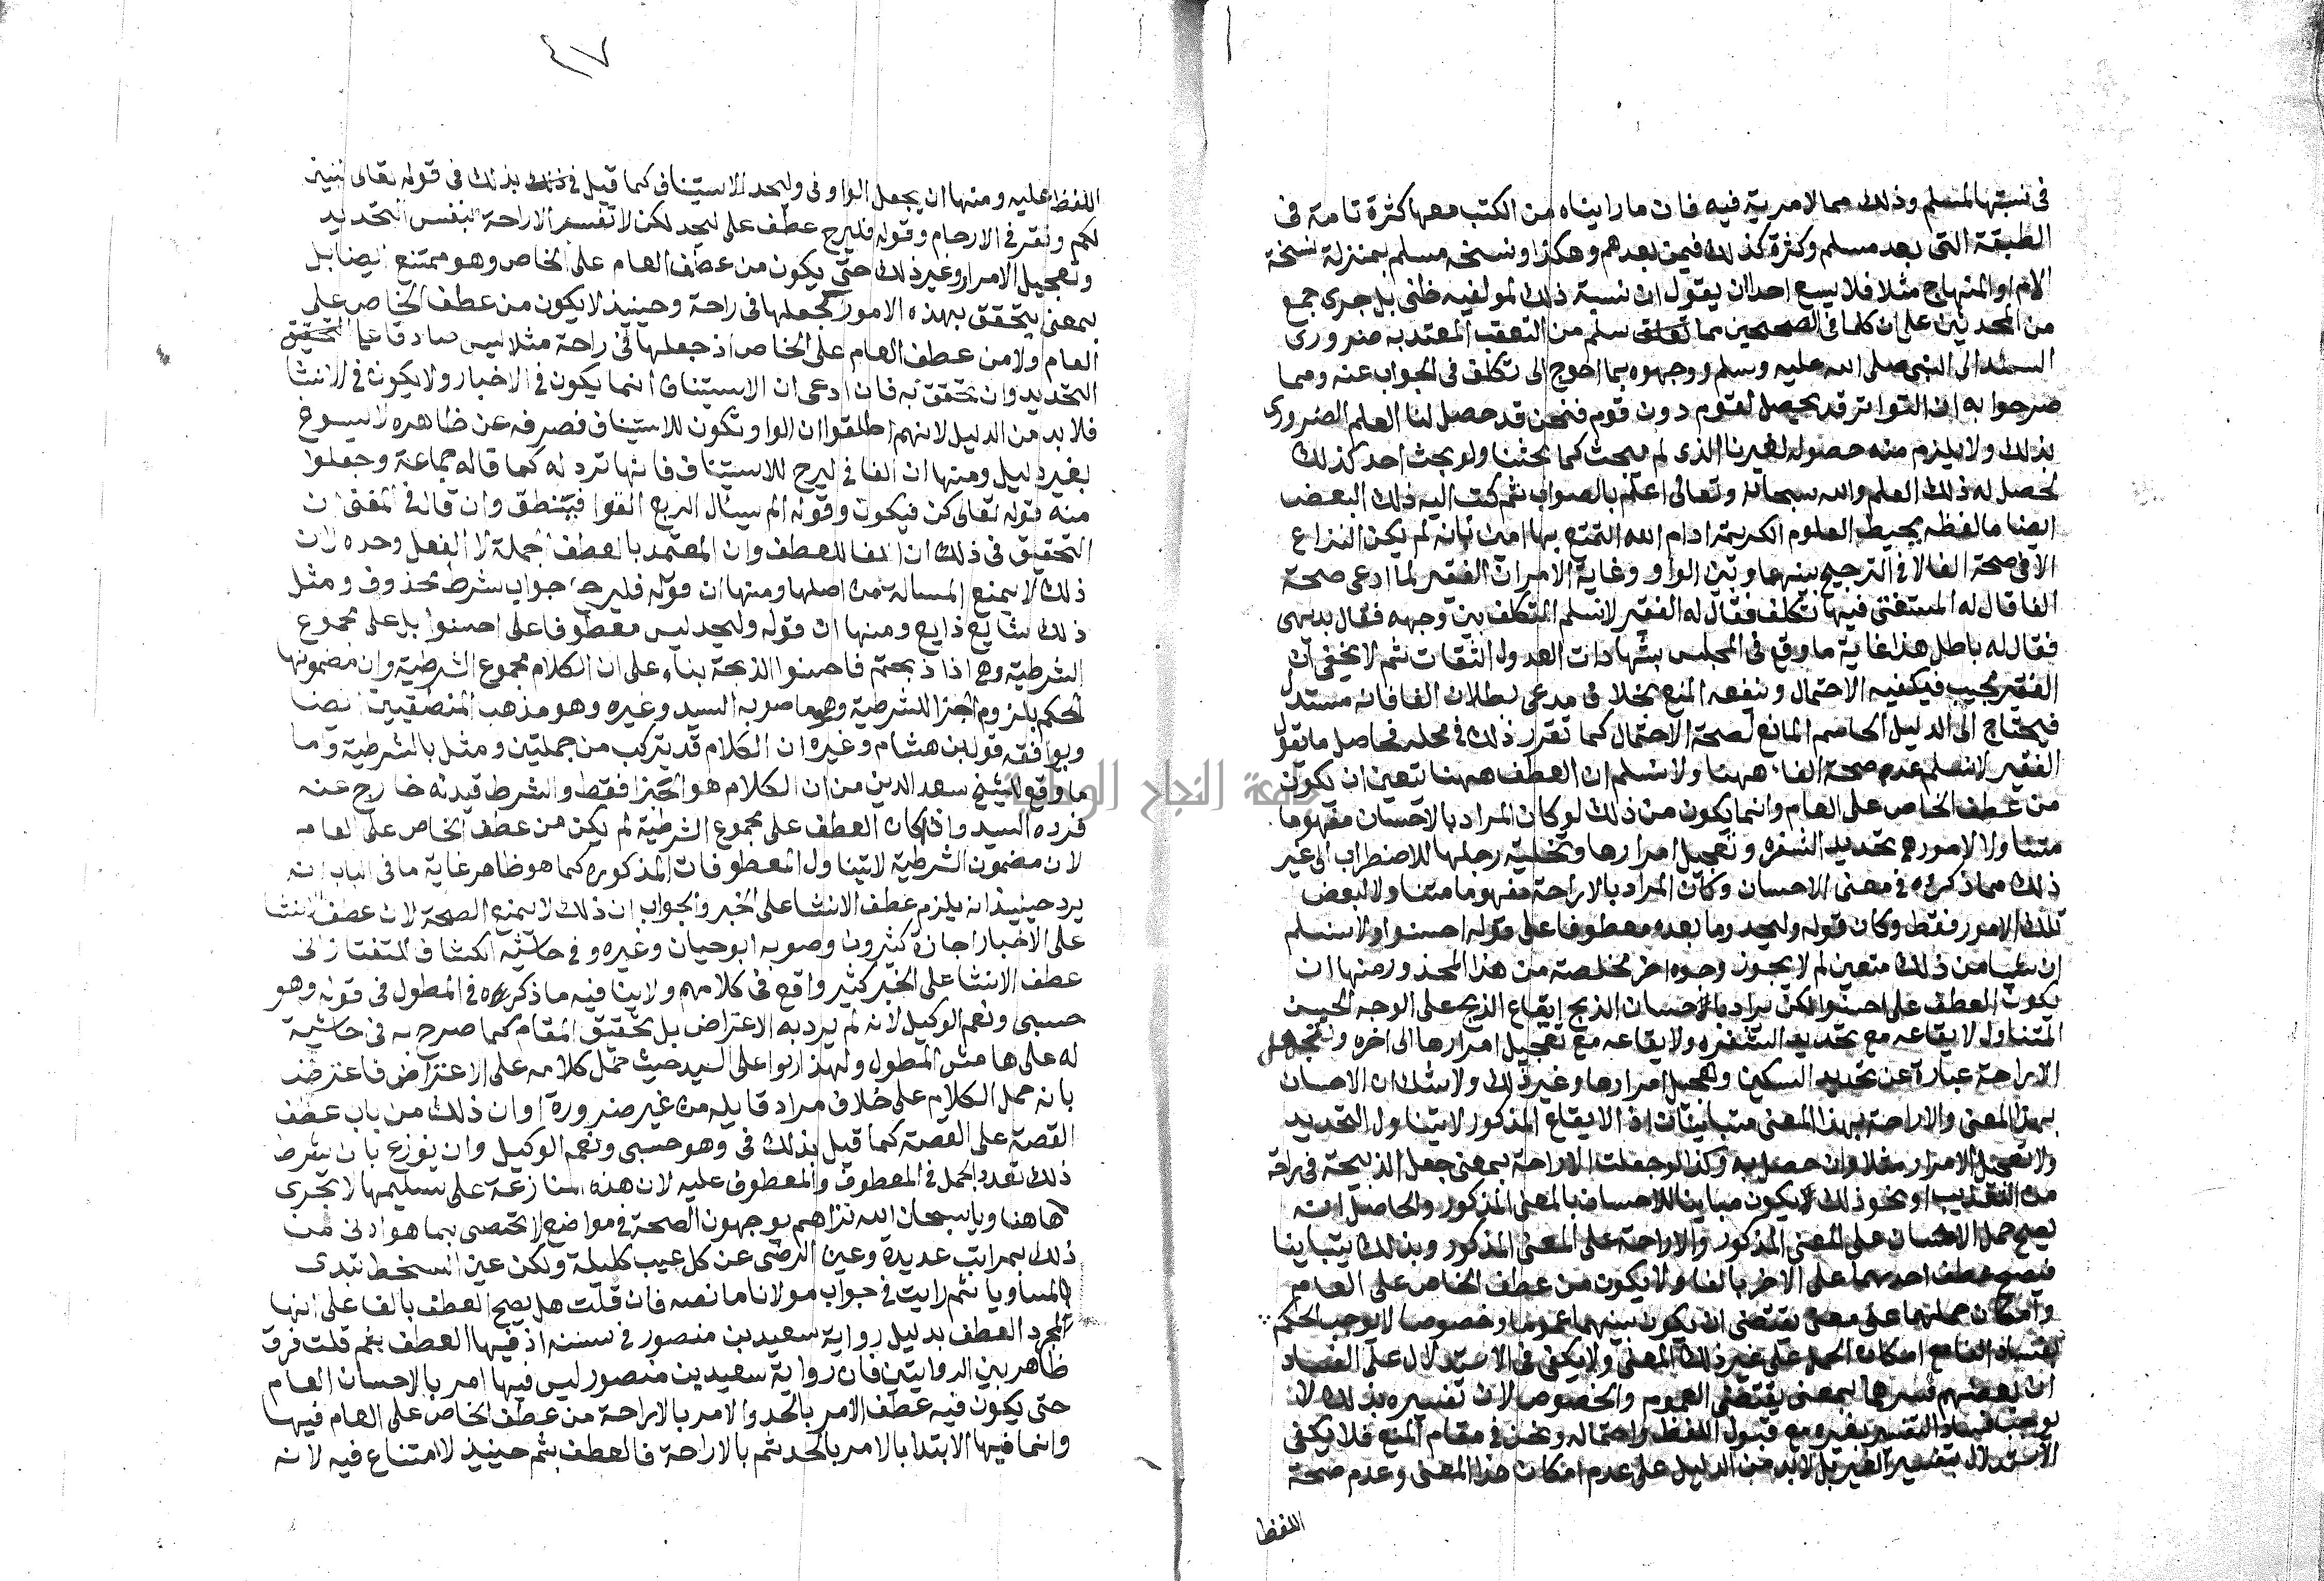 في نسبتها لمسلم وذلك مما لا مرية فيه فان ما رايناه من الكتب معها كثرة تامة في
الطبقة التي بعد مسلم وكثرة كذلك فيمن بعدهم وهكذا ونسخة مسلم بمنزلة نسخة
الام او المنهاج مثلا فلا يسع احدا ان يقول ان نسبة ذلك لمولفيه ظني بل جرى جمع
من المحدثين على ان كلما في الصحيحين مما سلم من التعقب المعتد به ضروري
السند الى النبي صلى الله عليه وسلم ووجهوه بما احوج الى تكلف في الجواب عنه ومما
صرحوا به ان التواتر قد يحصل لقوم دون قوم فنحن قد حصل لنا العلم الضروري
بذلك ولا يلزم منه حصوله لغيرنا الذي لم يبحث كما بحثنا ولو بحث احد كذلك
لحصل له ذلك العلم والله سبحانه وتعالى اعلم بالصواب ثم كتب اليه ذلك البعض
ايضا ما لفظه بحيط العلوم الكريمة ادام الله التمتع بها امين بانه لم يكن النزاع
الا في صحة الفا لا في الترجيح بينهما وبين الواو وغاية الامر ان الفقير لما ادعى صحة
الفا قال له المستفتى فيها تكلف فقال له الفقير لا نسلم التكلف بين وجهه فقال بديهي
فقال له باطل هذا غاية ما وقع في المجلس بشهادات العدول الثقات ثم لا يخفى ان
الفقير مجيب فيكفيه الاحتمال وينفعه المنع بخلاف مدعي بطلان الفا فانه مستدل
فيحتاج الى الدليل الحاسم المانع لصحة الاحتمال كما تقرر ذلك في محله فحاصل ما يقول
الفقير لا نسلم عدم صحة الفاء ههنا ولا نسلم ان العطف ههنا تعين ان يكون
من عطف الخاص على العام وانما يكون من ذلك لو كان المراد بالاحسان مفهوما
متناولا لامور هي تحديد الشفرة وتعجيل امرارها وتخلية رجلها للاضطراب الى غير
ذلك مما ذكروه في معنى الاحسان وكان المراد بالاراحة مفهوما متناولا لبعض
تلك الامور فقط وكان قوله وليحد وما بعده معطوفا على قوله احسنوا ولا نسلم
ان شيا من ذلك متعين لم لا يجوز وجوه اخر مخلصة من هذا المحذور منها ان
يكون العطف على احسنوا لكن يراد بالاحسان الذبح ايقاع الذبح على الوجه الحسن
المتناول لايقاعه مع تحديد الشفرة ولايقاعه مع تعجيل امرارها الى اخره ونجعل
الاراحة عبارة عن تحديد السكين وتعجيل امرارها وغير ذلك ولا شك ان الاحسان
بهذا المعنى والاراحة بهذا المعنى متباينان اذ الايقاع المذكور لا يتناول التحديد
ولا تعجيل الامرار مثلا وان حصل به وكذا لو جعلت الاراحة بمعنى جعل الذبيحة في راحة
من التعذيب او نحو ذلك يكون مباينا للاحسان بالمعنى المذكور والحاصل انه
يصح حمل الاحسان على المعنى المذكور والاراحة على المعنى المذكور وبذلك يتباينا
فيصح عطف احدهما على الاخر بالفا ولا يكون من عطف الخاص على العام
وامكان حملهما على معنى يقتضي ان يكون بينهما عموما وخصوصا لا يوجب الحكم
امكان الحمل على غير ذلك المعنى ولا يكفي في الاستدلال على الفساد
ان بعضهم فسرهما بمعنى يقتضي العموم والخصوص لان تفسيره بذلك لا
يوجب فساد التفسير بغيره مع قبول اللفظ واحتماله ونحن في مقام المنع فلا يكفي
الاستدلال بتفسير الغير بل لابد من الدليل على عدم امكان هذا المعنى وعدم صحة
اللفظ
٤١٧
اللفظ عليه ومنها ان يجعل الواو في وليحد للاستيناف كما قيل بذلك في قوله تعالى لنبين
لكم ونقر في الارحام وقوله فليرح عطف على ليحد لكن لا تفسر الاراحة بنفس التحديد
وتعجيل الامرار وغير ذلك حتى يكون من عطف العام على الخاص وهو ممتنع ايضا بل
بمعنى يتحقق بهذه الامور كجعلها في راحة وحينيذ لا يكون من عطف الخاص على
العام ولا من عطف العام على الخاص اذ جعلها في راحة مثلا ليس صادقا على
التحديد وان تحقق به فان ادعى ان الاستيناف انما يكون في الاخبار ولا يكون في الانشا
فلا بد من الدليل لانهم اطلقوا ان الواو تكون للاستيناف فصرفه عن ظاهره لا يسوغ
بغير دليل ومنها ان الفا في ليرح للاستيناف فانها ترد له كما قاله جماعة وجعلوا
منه قوله تعالى كن فيكون وقوله الم تسال الربع القوا فينطق وان قال في المغني ان
التحقيق في ذلك ان الفا للعطف وان المعتمد بالعطف الجملة لا الفعل وحده لان
ذلك لا يمنع المسالة من اصلها ومنها ان قوله فليرح جواب شرط محذوف ومثل
ذلك شايع ذايع ومنها ان قوله وليحد ليس معطوفا على احسنوا بل على مجموع
الشرطية وهي اذا ذبحتم فاحسنوا الذبحة بناء على ان الكلام مجموع الشرطية وان مضمونها
الحكم بلزوم الجزا للشرطية وهو ما صوبه السيد وغيره وهو مذهب المنطقيين ايضا
ويوافقه قول ابن هشام وغيره ان الكلام قد يتركب من جملتين ومثل بالشرطية وما
ما وقع للشيخ سعد الدين من ان الكلام هو الجزا فقط والشرط قيد له خارج عنه
فرده السيد واذا كان العطف على مجموع الشرطية لم يكن من عطف الخاص على العام
لان مضمون الشرطية لا يتناول المعطوفات المذكوره كما هو ظاهر غاية ما في الباب انه
يرد حينيذ انه يلزم عطف الانشا على الخبر والجواب ان ذلك لا يمنع الصحة لان عطف الانشا
على الاخبار اجازه كثيرون وصوبه ابو حيان وغيره وفي حاشية الكشاف للتفتازاني
عطف الانشا على الخبر كثير واقع في كلامهم ولا ينافيه ما ذكره في المطول في قوله وهو
حسبي ونعم الوكيل لانه لم يرد به الاعتراض بل تحقيق المقام كما صرح به في حاشية
له على هامش المطول ولهذا ردوا على السيد حيث حمل كلامه على الاعتراض فاعترض
بانه حمل الكلام على خلاف مراد قايله من غير ضرورة او ان ذلك من باب عطف
القصة على القصة كما قيل بذلك في وهو حسبي ونعم الوكيل وان نوزع بان شرط
ذلك تعدد الجمل في المعطوف والمعطوف عليه لان هذه المنازعة على تسليمها لا تجري
هاهنا ويا سبحان الله نراهم يوجهون الصحة في مواضع لا تحصى بما هو ادنى من
ذلك بمراتب عديدة وعين الرضى عن كل عيب كليلة ولكن عين السخط تبدي
المساويا ثم رايت في جواب مولانا ما نصه فان قلت هل يصح العطف بالفا على انها
لمجرد العطف بدليل رواية سعيد بن منصور في سننه اذ فيها العطف بثم قلت فرق
ظاهر بين الروايتين فان رواية سعيد بن منصور ليس فيها امر بالاحسان العام
حتى يكون فيه عطف الامر بالحد والامر بالاراحة من عطف الخاص على العام فيها
وانما فيها الابتدا بالامر بالحد ثم بالاراحة فالعطف بثم حينيذ لا امتناع فيه لانه
جامعة النجاح الوطنية